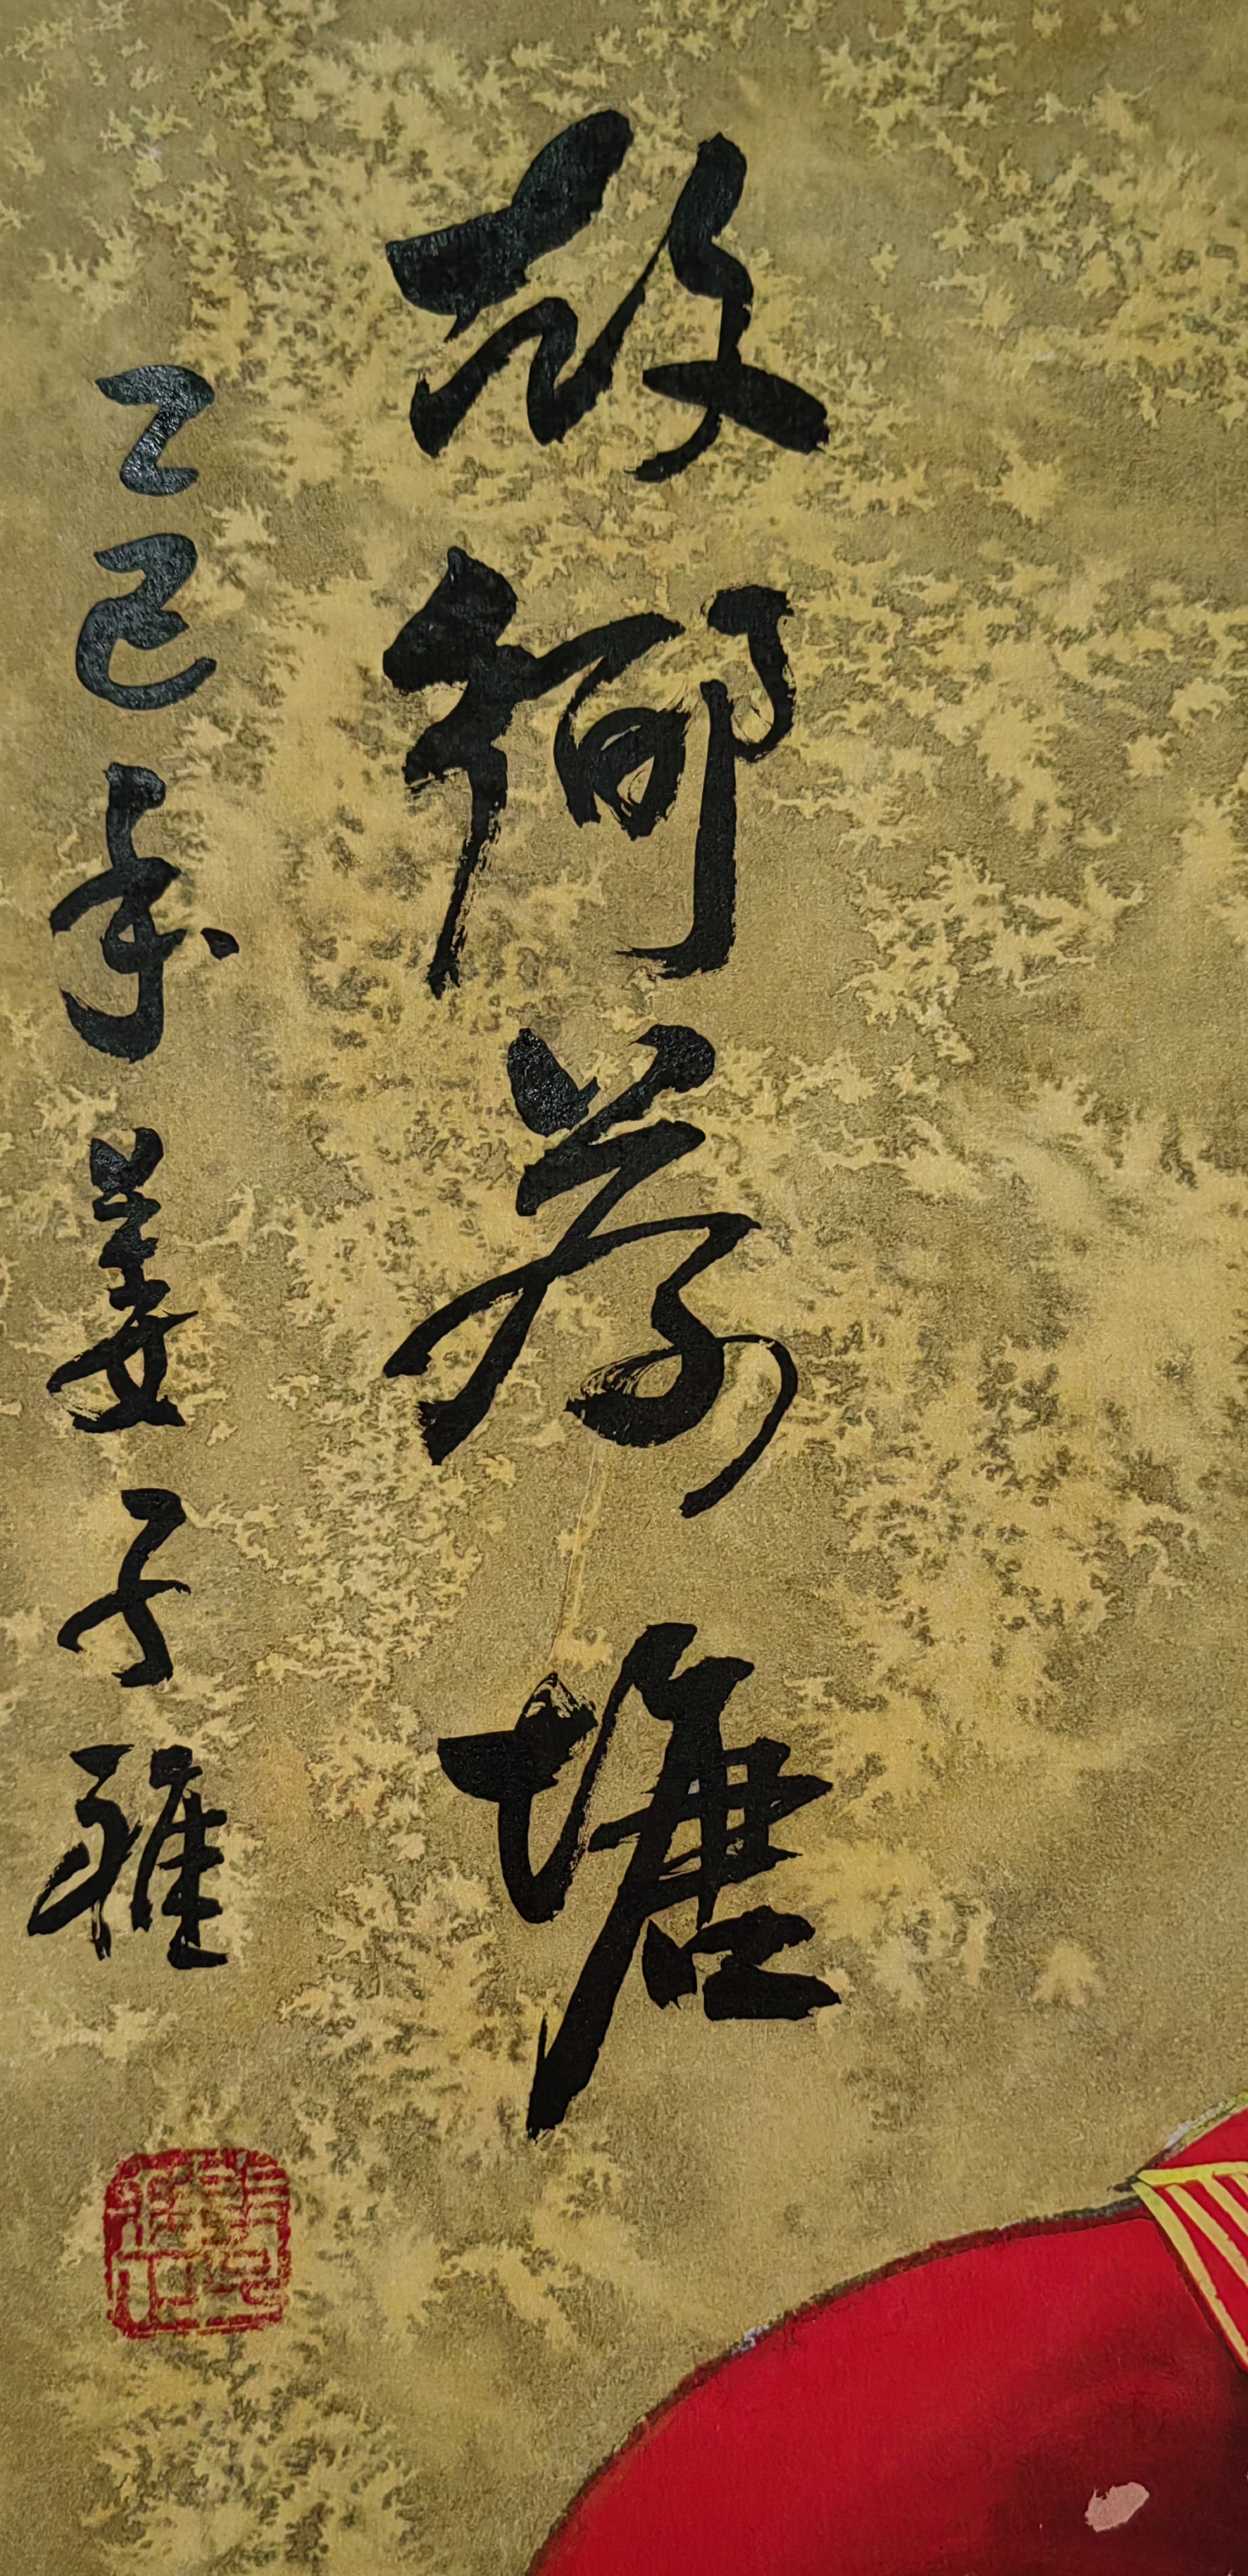 故鄉荷塘
乙巳年姜子雅